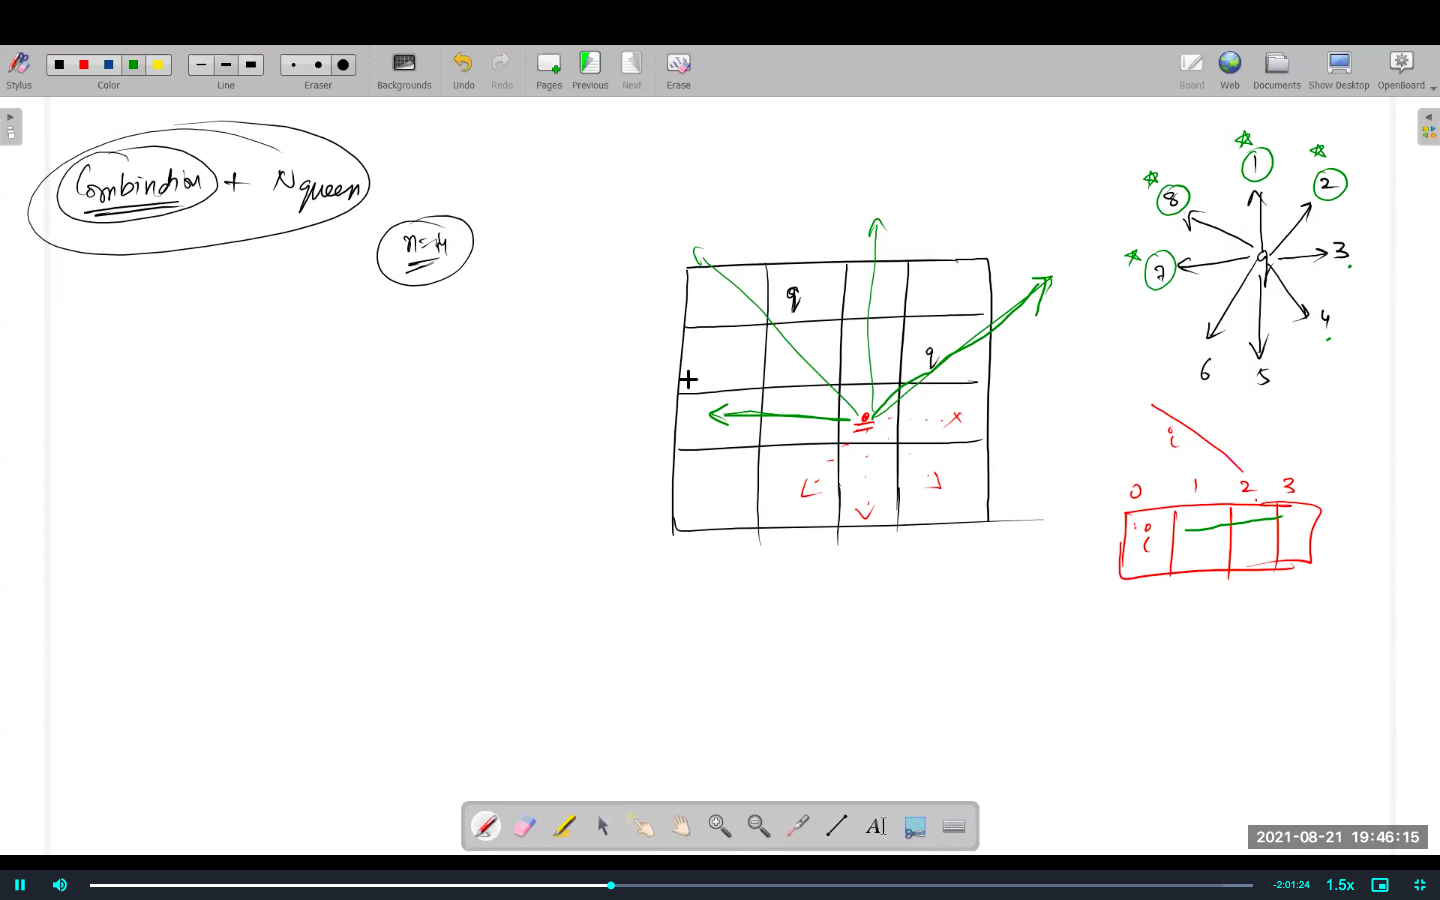 Stylus
Color
Line
Eraser
Backgrounds
Undo
Redo
Pages
Previous
Next
Erase
Board
Web
Documents
Show Desktop
OpenBoard
Combination + N queen
n=4
q
q
1
2
3
4
5
6
7
8
q
i
0 1 2 3
i
2021-08-21 19:46:15
-2:01:24
1.5x